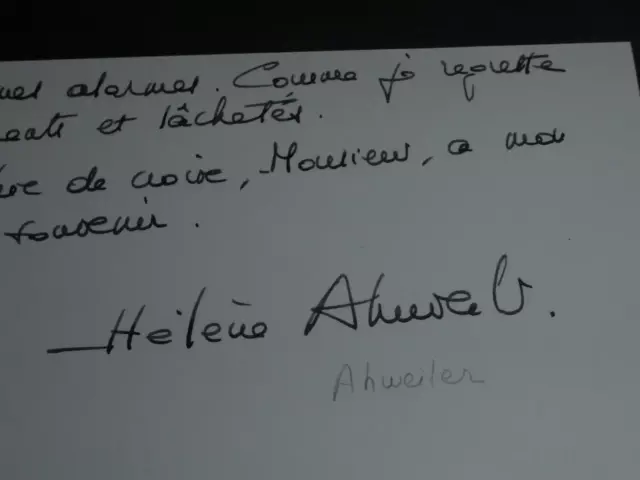 mes alarmes. Comme je regrette
et lâchetés.
de croire, Monsieur, a mon
souvenir.
Hélène Ahrweil.
Ahweiler